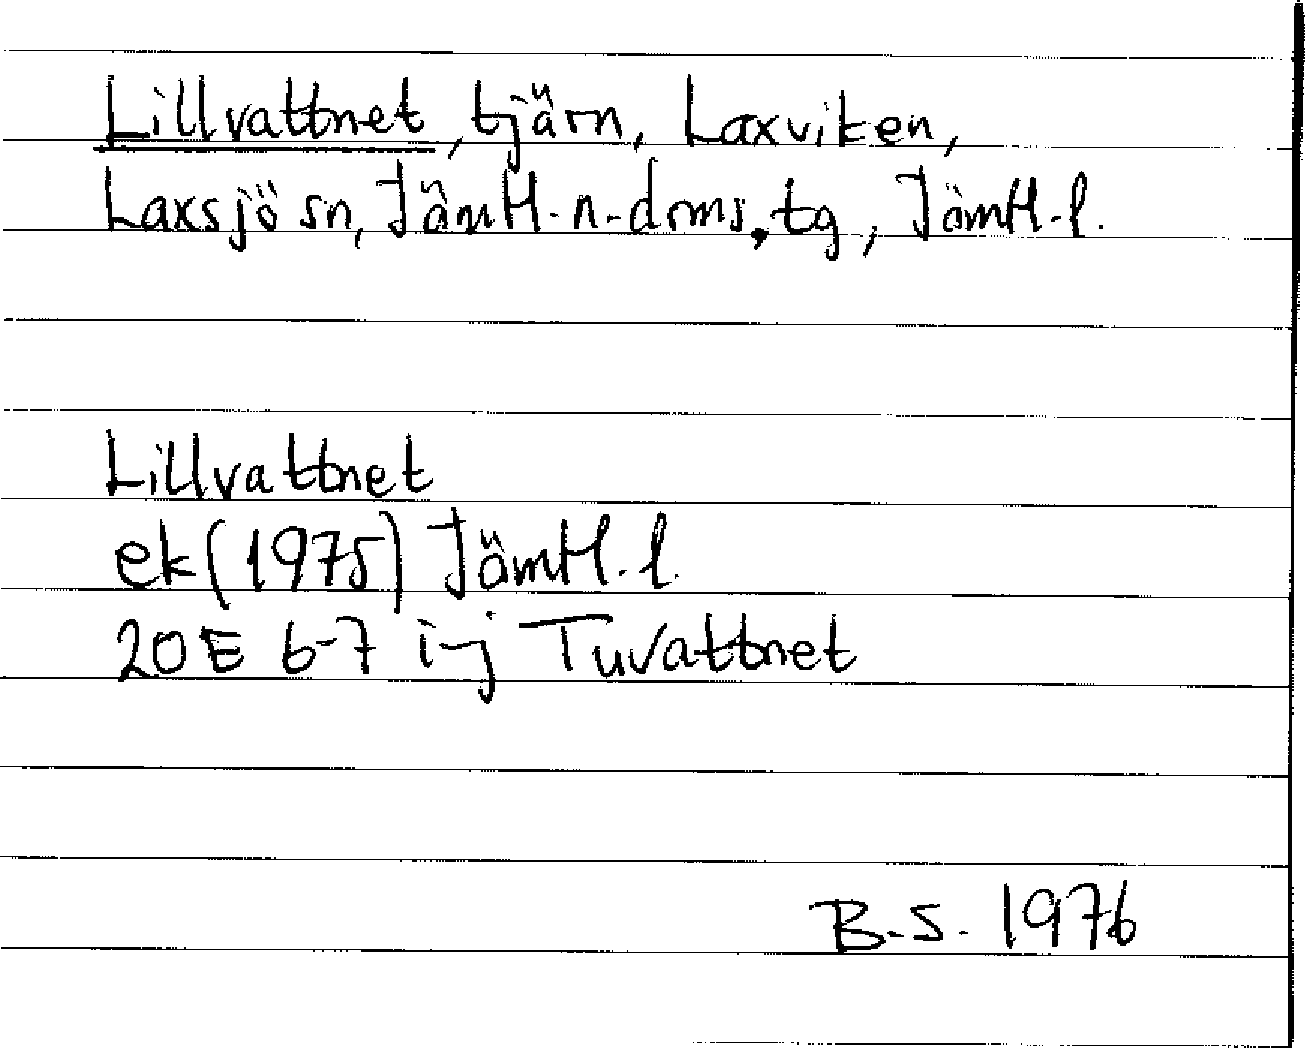 Lillvattnet, tjärn, Laxviken,
Laxsjö sn, Jämtl. n. doms. tg, Jämtl. l.
Lillvattnet
ek (1975) Jämtl. l.
20E 6-7 i-j Tuvattnet
B.S. 1976